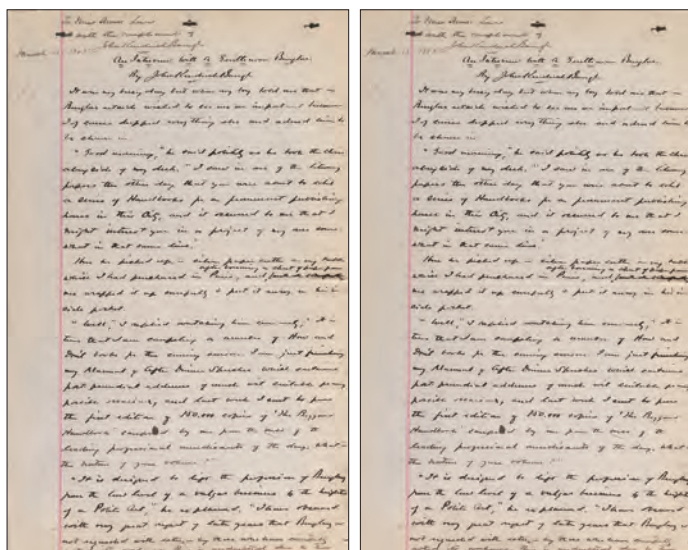 To Miss Annie Law
with the compliments of
John Kendrick Bangs
March
An Interview with A Gentleman Burglar
By John Kendrick Bangs
It was my busy day but when my boy told me that a
Burglar outside wished to see me on important business
I of course dropped everything else and asked him to
be shown in.
"Good morning," he said politely as he took the chair
alongside of my desk. "I saw in one of the literary
papers the other day that you were about to edit
a series of Handbooks for a prominent publishing
house in this City, and it occurred to me that I
might interest you in a project of my own some-
what in that same line."
Here he picked up a silver paper cutter on my table
after running a sheet of paper
which I had purchased in Paris, and
one wrapped it up carefully & put it away in his in-
side pocket.
"Well," I replied watching him , "It is
true that I am compiling a number of How and
Don't books for the coming season. I am just finishing
my Manual of After Dinner Speeches which contains
post prandial addresses of much wit suitable for any
occasion, and last week I sent to press
the first edition of 150,000 copies of 'The Beggars
Handbook' compiled by me from the notes of the
leading professional mendicants of the day. What is
the nature of your volume?"
"It is designed to lift the profession of Burglary
from the low level of a vulgar business to the heights
of a Polite Art," he explained. "I have observed
with very great regret of late years that Burglary is
not regarded with